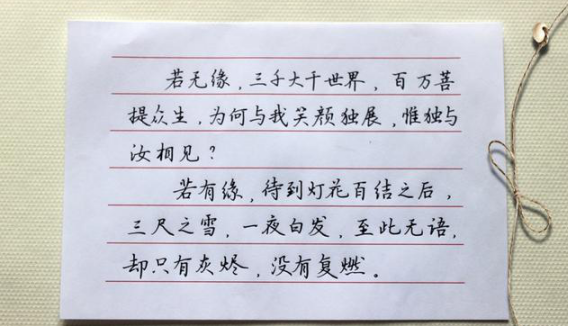 若无缘，三千大千世界，百万菩
提众生，为何与我笑颜独展，惟独与
汝相见？
若有缘，待到灯花百结之后，
三尺之雪，一夜白发，至此无语，
却只有灰烬，没有复燃。